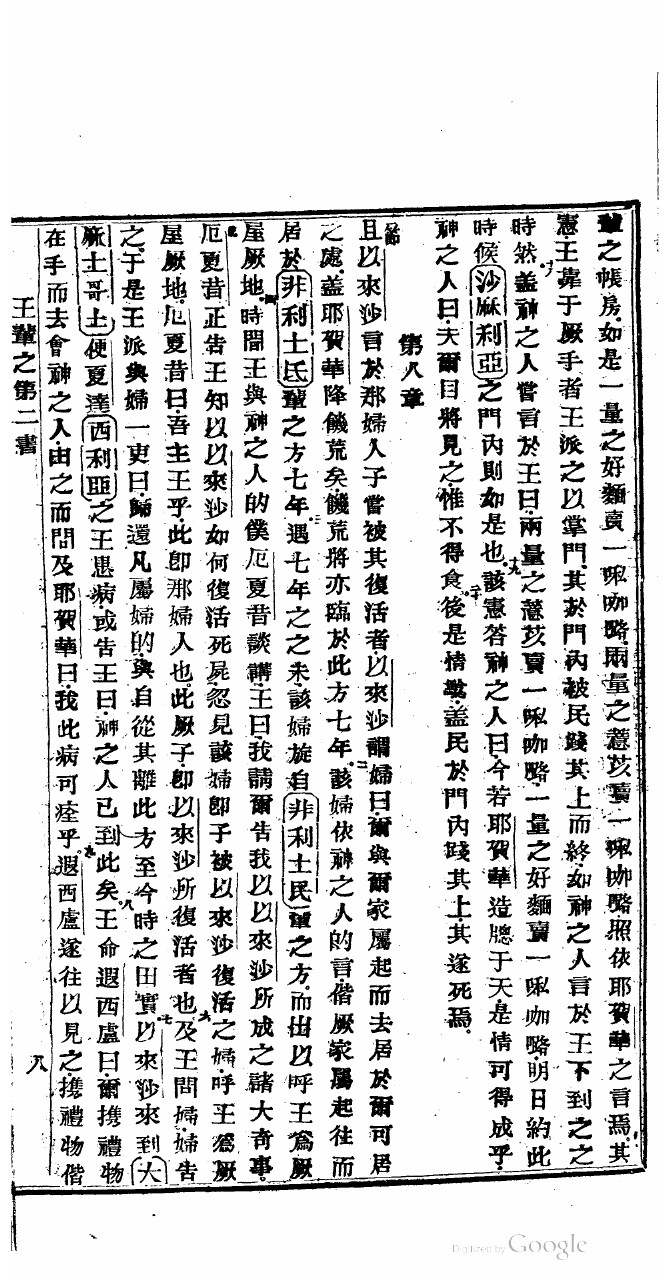 輩之帳房如是一量之好麵賣一㖿咖略兩量之薏苡賣一㖿咖略照依耶賀華之言焉其
憲王靠于厥手者王派之以掌門其於門內被民踐其上而終如神之人言於王下到之之
時然蓋神之人嘗言於王曰兩量之薏苡賣一㖿咖略一量之好麵賣一㖿咖略明日約此
時候沙麻利亞之門內則如是也該憲答神之人曰今若耶賀華造牕于天是情可得成乎
神之人曰夫爾目將見之惟不得食後是情驗蓋民於門內踐其上其遂死焉
第八章
且以來沙言於那婦人子嘗被其復活者以來沙謂婦曰爾與爾家屬起而去居於爾可居
之處蓋耶賀華降饑荒矣饑荒將亦臨於此方七年該婦依神之人的言偕厥家屬起往而
居於非利士氏輩之方七年遇七年之之末該婦旋自非利士民輩之方而出以呼王為厥
屋厥地時間王與神之人的僕厄夏昔談講王曰我請爾告我以以來沙所成之諸大奇事
厄夏昔正告王知以以來沙如何復活死屍忽見該婦卽子被以來沙復活之婦呼王為厥
屋厥地厄夏昔曰吾主王乎此卽那婦人也此厥子卽以來沙所復活者也及王問婦婦告
之于是王派與婦一吏曰歸還凡屬婦的與自從其離此方至今時之田實以來沙來到大
麻士哥土便夏達西利亞之王患病或告王曰神之人已到此矣王命遐西盧曰爾携禮物
在手而去會神之人由之而問及耶賀華曰我此病可痊乎遐西盧遂往以見之携禮物偕
王輩之第二書
八
Digitized by Google